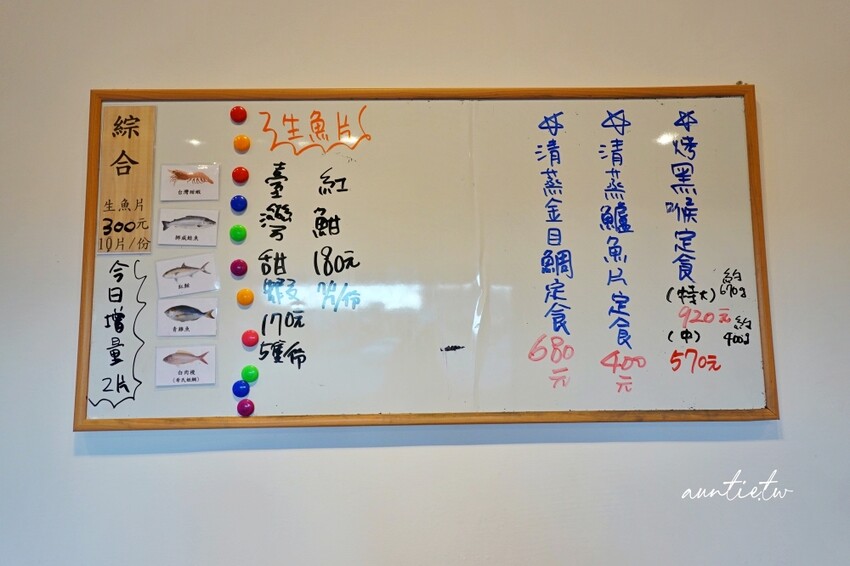 綜合
生魚片
300元
10片/份
今日增量2片
台灣甜蝦
挪威鮭魚
紅魽
青雞魚
白肉魚
生魚片
臺灣甜蝦
170元
5隻/份
紅魽
180元
7片/份
清蒸金目鱸定食
680元
清蒸鱸魚片定食
400元
烤黑喉定食
(特大)
約670g
920元
(中)
約400g
570元
auntie.tw